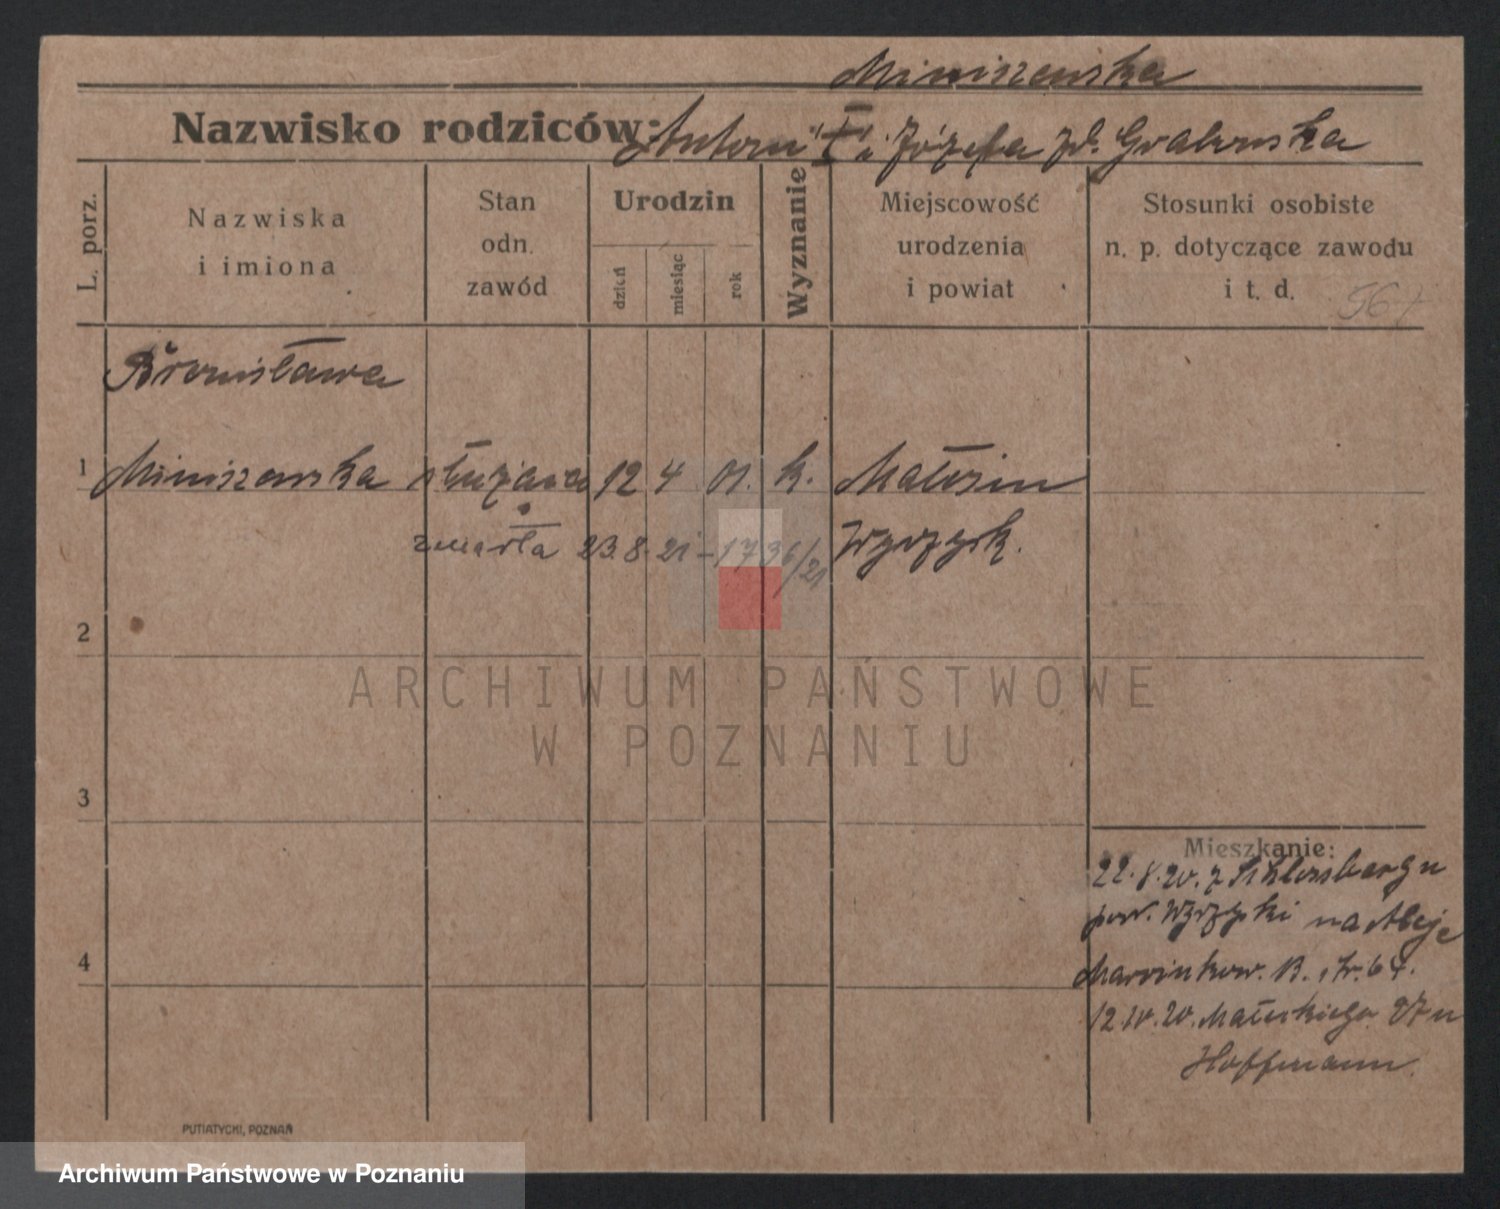 Miniszewska
Nazwisko rodziców: Antoni i Józefa zd. Grabowska
L. porz.
Nazwiska
i imiona
Stan
odn.
zawód
Urodzin
dzień
miesiąc
rok
Wyznanie
Miejscowość
urodzenia
i powiat
Stosunki osobiste
n. p. dotyczące zawodu
i t. d.
Bronisława
1 Miniszewska służąca 12 4 01. k.
zmarła 23.8.21 – 1736/21 Wyrzysk.
2
ARCHIWUM PAŃSTWOWE
W POZNANIU
3
Mieszkanie:
22.8.20. z
pow. Wyrzyski na Aleje
4
Marcinkow. B. str. 64.
12.10.20. Małeckiego 27 u
Hoffmann.
PUTIATYCKI, POZNAŃ
Archiwum Państwowe w Poznaniu